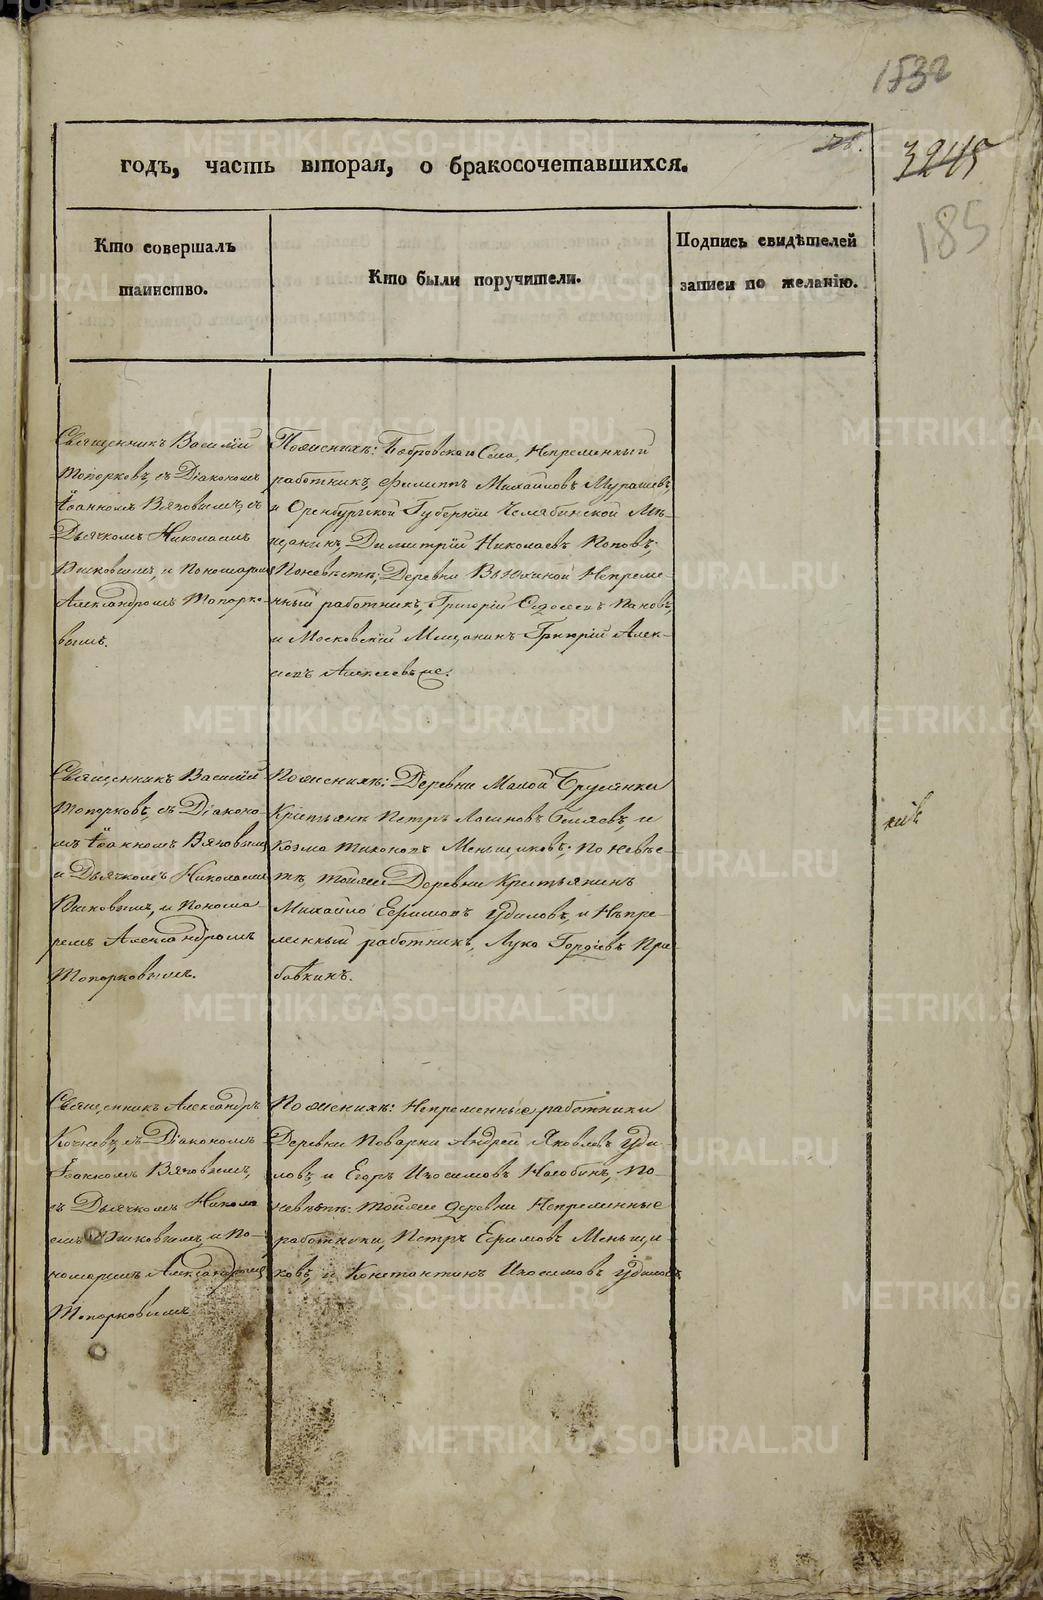 1832
годъ, часть вторая, о бракосочетавшихся.
3245
185
Кто совершалъ
таинство.
Кто были поручители.
Подпись свидѣтелей
записи по желанію.
Священникъ Василій
Топорковъ, съ Діакономъ
Іоанномъ Вяновымъ, съ
Дьячкомъ Николаемъ
и Пономаремъ
Александромъ Топорко-
вымъ.
По женихѣ: Бобровскаго Села, Непременный
работникъ, Филиппъ Михайловъ Мурашевъ,
и Оренбургской Губерніи Челябинской Мѣ-
щанинъ Димитрій Николаевъ Поповъ;
По невѣстѣ; Деревни Непреме-
нный работникъ, Григорій Пановъ,
и Московскій Мещанинъ Григорій Алек-
сеевъ
Священникъ Василій
Топорковъ, съ Діаконо-
мъ Іоанномъ Вяновымъ
и Дьячкомъ Николаемъ
и Понома-
ремъ Александромъ
Топорковымъ.
По женихѣ: Деревни Малой Брусянки
Крестьяне Петръ Логиновъ Беляевъ, и
Козма Тихоновъ Меньщиковъ; По невѣс-
тѣ, тойже Деревни Крестьянинъ
Михайло Ефимовъ Удиловъ, и Непре-
менный работникъ, Лука Гордѣевъ При-
бавкинъ.
Священникъ Александръ
Кочневъ, съ Діакономъ
Іоанномъ Вяновымъ,
съ Дьячкомъ Никола
емъ и По-
номаремъ Александромъ
Топорковымъ
По женихѣ: Непременные работники
Деревни Поварни Андрей Яковлевъ Уди-
ловъ, и Егоръ Изосимовъ По-
невѣстѣ: тойже деревни Непременные
работники, Петръ Ефимовъ Меньщи-
ковъ, и Константинъ Изосимовъ Удиловъ
METRIKI.GASO-URAL.RU